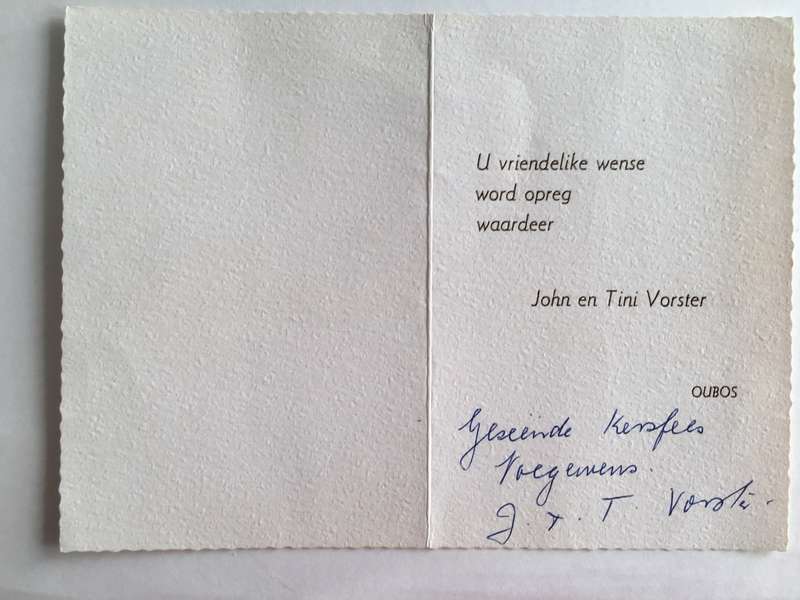 U vriendelike wense
word opreg
waardeer
John en Tini Vorster
OUBOS
Geseënde Kersfees
Toegewens.
J. + T. Vorster.